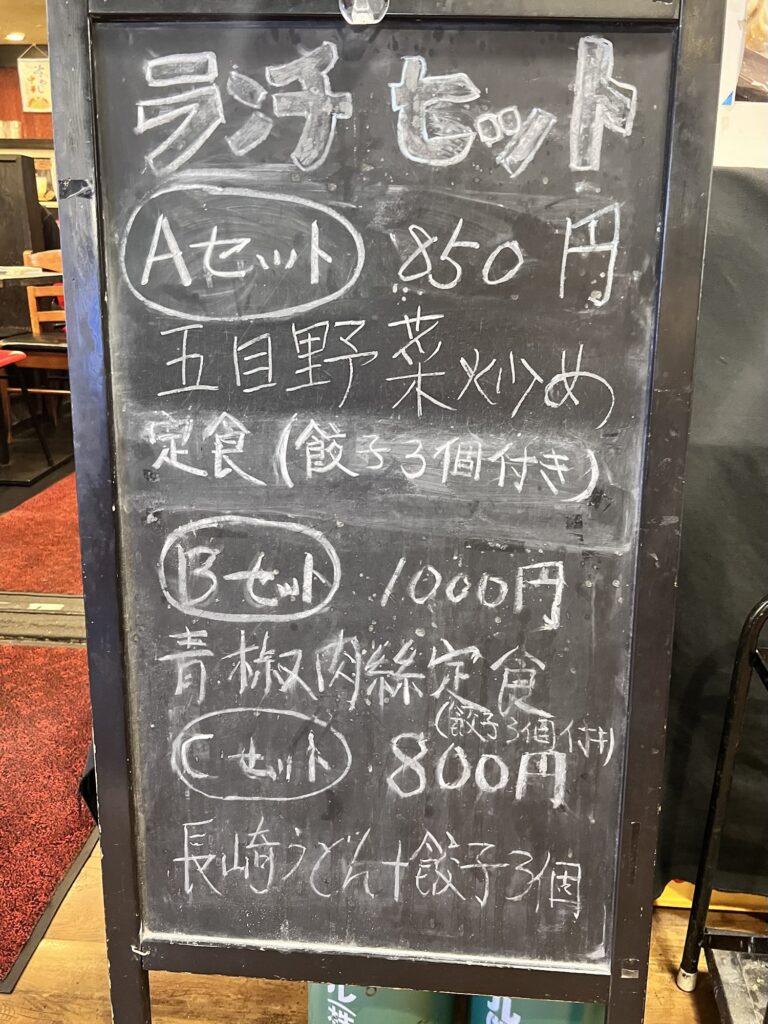 ランチ セット
Aセット 850円
五目野菜炒め
定食(餃子3個付き)
Bセット 1000円
青椒肉絲定食
(餃子3個付キ)
Cセット 800円
長崎うどん+餃子3個